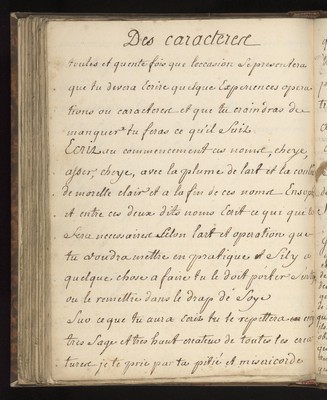 Des caracteres
toutes et quente fois que loccasion se presentera
que tu devera Ecrire quelque Experiences opera
tions ou caracteres et que tu craindras de
manquer tu feras ce qu'il suit
Ecris au commencement ces noms, cheye,
aser, cheye, avec la plume de lart et la
de morelle clair et a la fin de ces noms
et entre ces deux dits noms Ecrit ce que qui te
sera necessaires selon lart et operation que
tu voudra mettre en pratique et sily a
quelque chose a faire tu le doit porter
ou le remettre dans le drap de Soye
Sur ce que tu aura ecrit tu le repettera
tres Sage et tres haut createur de toutes les crea
tures je te prie par ta pitié et misericorde